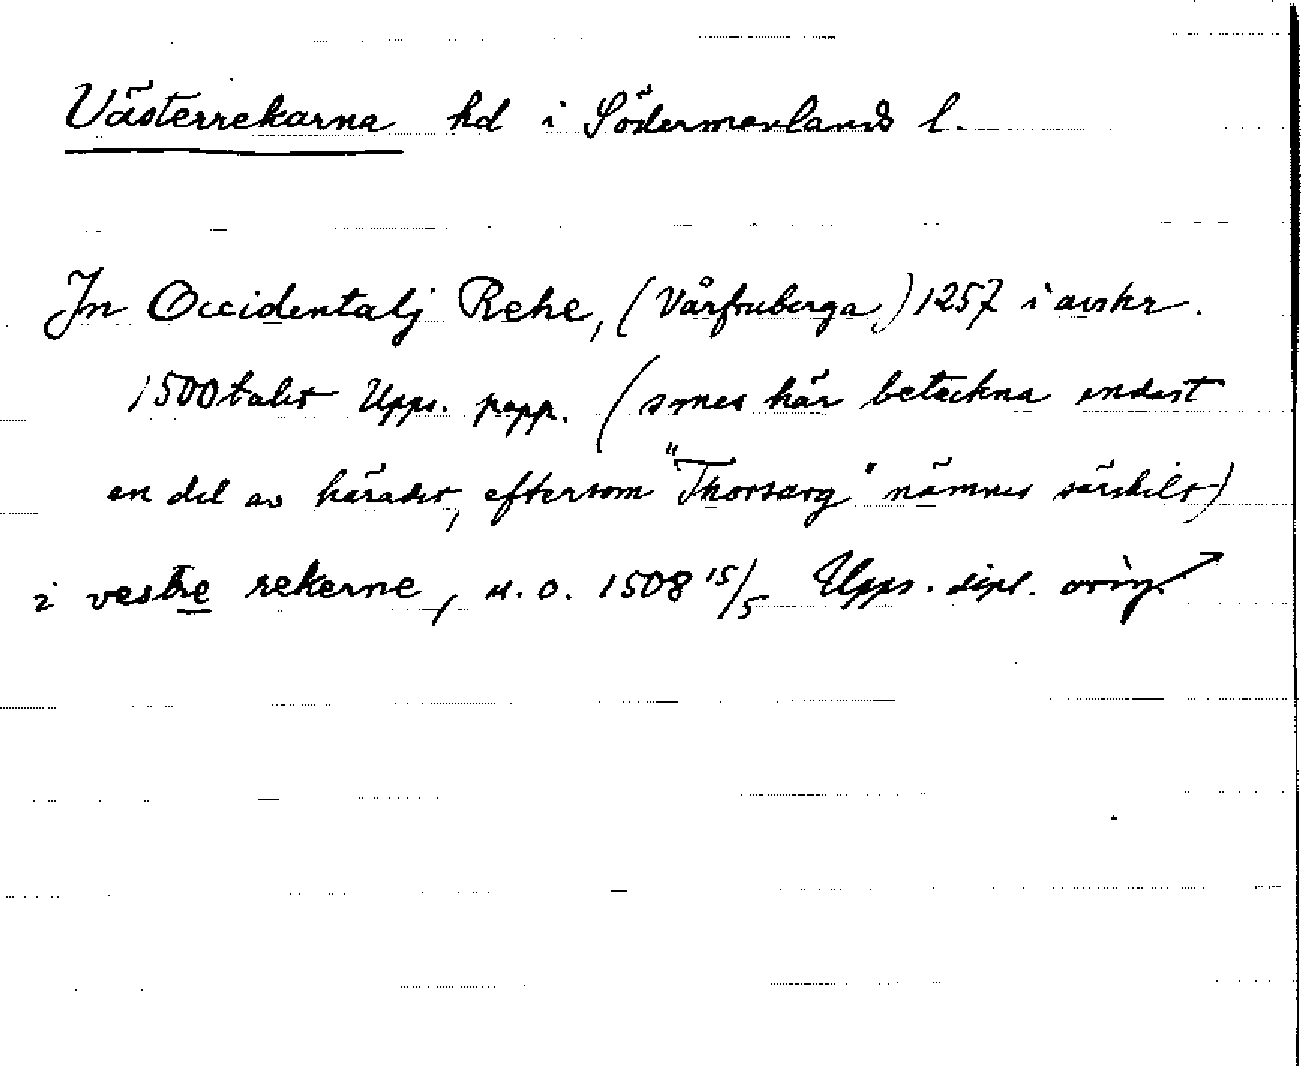 Västerrekarna hd i Södermanlands l.
In Occidentalj Reke, (Vårfruberga) 1257 i avskr.
1500talet Upps. papp. (synes här beteckna endast
en del av häradet, eftersom "Thorsarg" nämnes särskilt)
i vestre rekerne, u. o. 1508 15/5 Upps. dipl. orig